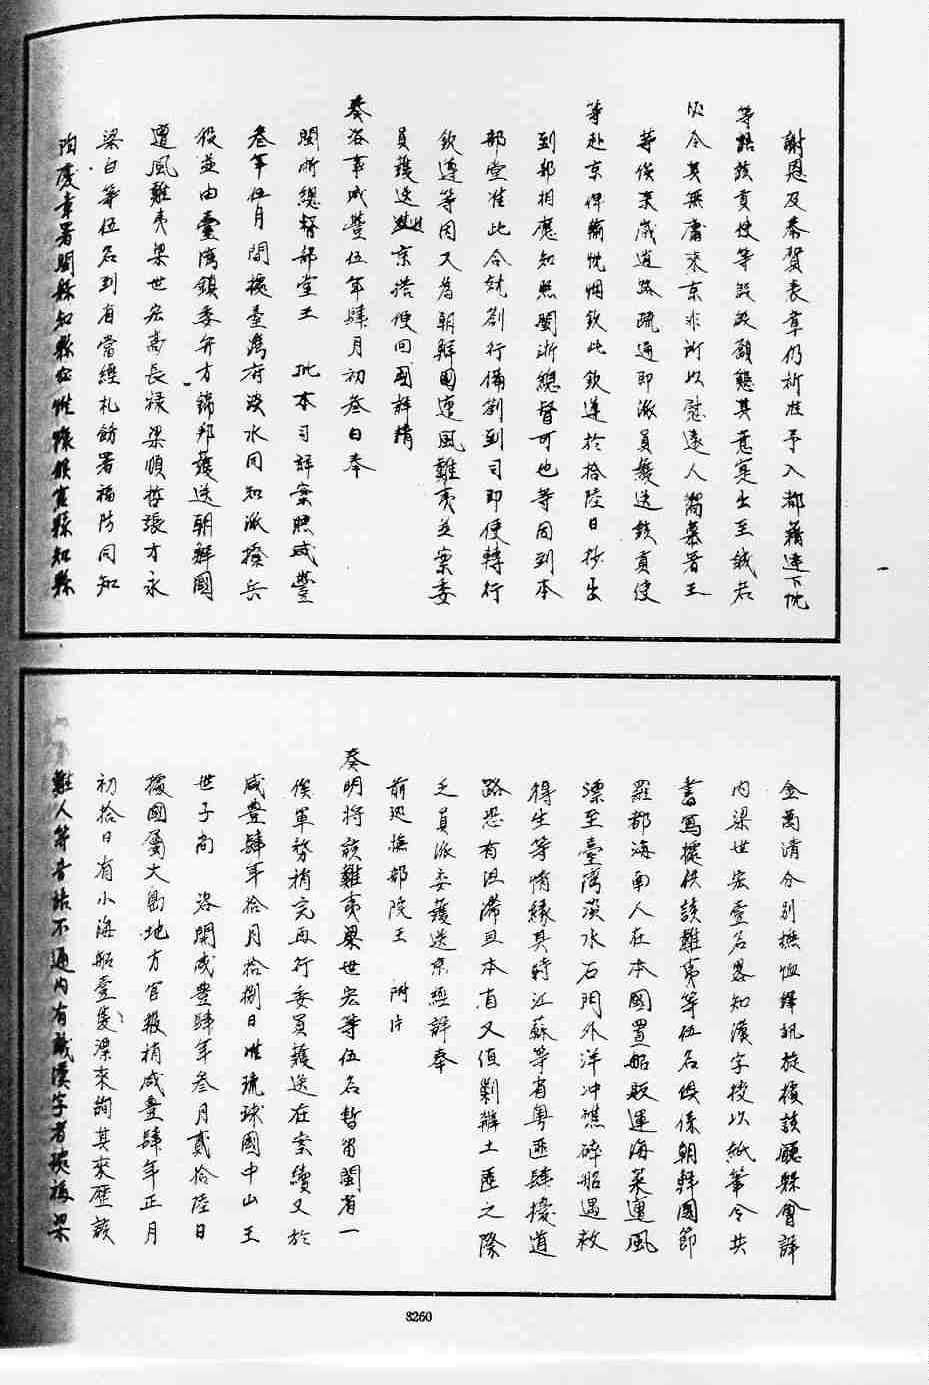 謝恩及恭賀表章仍祈准予入都藉達下忱
等語該貢使等設設願懇其意寔出至誠若
必令其無庸來京非所以慰遠人嚮慕著王
等俟來歲道路疏通即派員護送該貢使
等赴京俾輸忱悃欽此欽遵於拾陸日抄出
到部相應知照閩浙總督可也等因到本
部堂准此合就劄行備劄到司即便轉行
欽遵等因又為朝鮮國遭風難夷並案委
員護送進京搭便回國詳請
奏咨事咸豐伍年肆月初叁日奉
閩浙總督部堂王 批本司詳案照咸豐
叁年伍月間據臺灣府淡水同知派撥兵
役並由臺灣鎮委弁方錦邦護送朝鮮國
遭風難夷梁世宏高長祿梁順哲張才永
梁白等伍名到省當經札飭署福防同知
陶慶章署閩縣知縣 侯官縣知縣
金萬清分別撫恤譯訊旋據該廳縣會詳
內梁世宏壹名畧知漢字授以紙筆令其
書寫據供該難夷等伍名俱係朝鮮國節
羅都海南人在本國置船販運海菜遭風
漂至臺灣淡水石門外洋冲礁碎船遇救
得生等情緣其時江蘇等省粵匪肆擾道
路恐有阻滯且本省又值剿辦土匪之際
乏員派委護送京經詳奉
前廵撫部院王 附片
奏明將該難夷梁世宏等伍名暫留閩省一
俟軍務稍完再行委員護送在案續又於
咸豐肆年拾月拾捌日准琉球國中山王
世子尚 咨開咸豐肆年叁月貳拾陸日
據國屬大島地方官報稍咸豐肆年正月
初拾日有小海船壹隻漂來詢其來歷該
難人等言語不通內有識漢字者 梁
8260